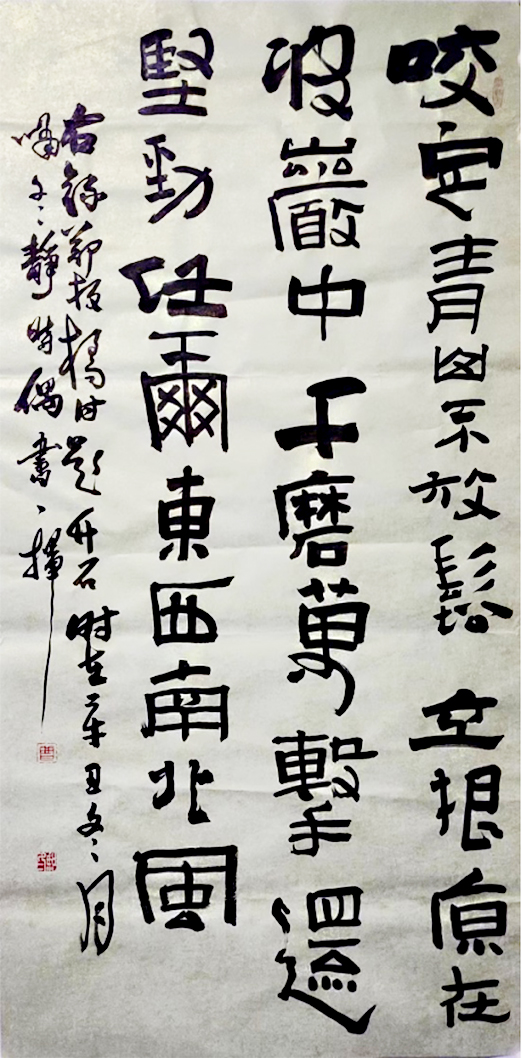 咬定青山不放鬆立根原在
破巖中千磨萬擊還
堅勁任爾東西南北風
右錄鄭板橋詩題竹石時在辛丑冬月
靜時偶書